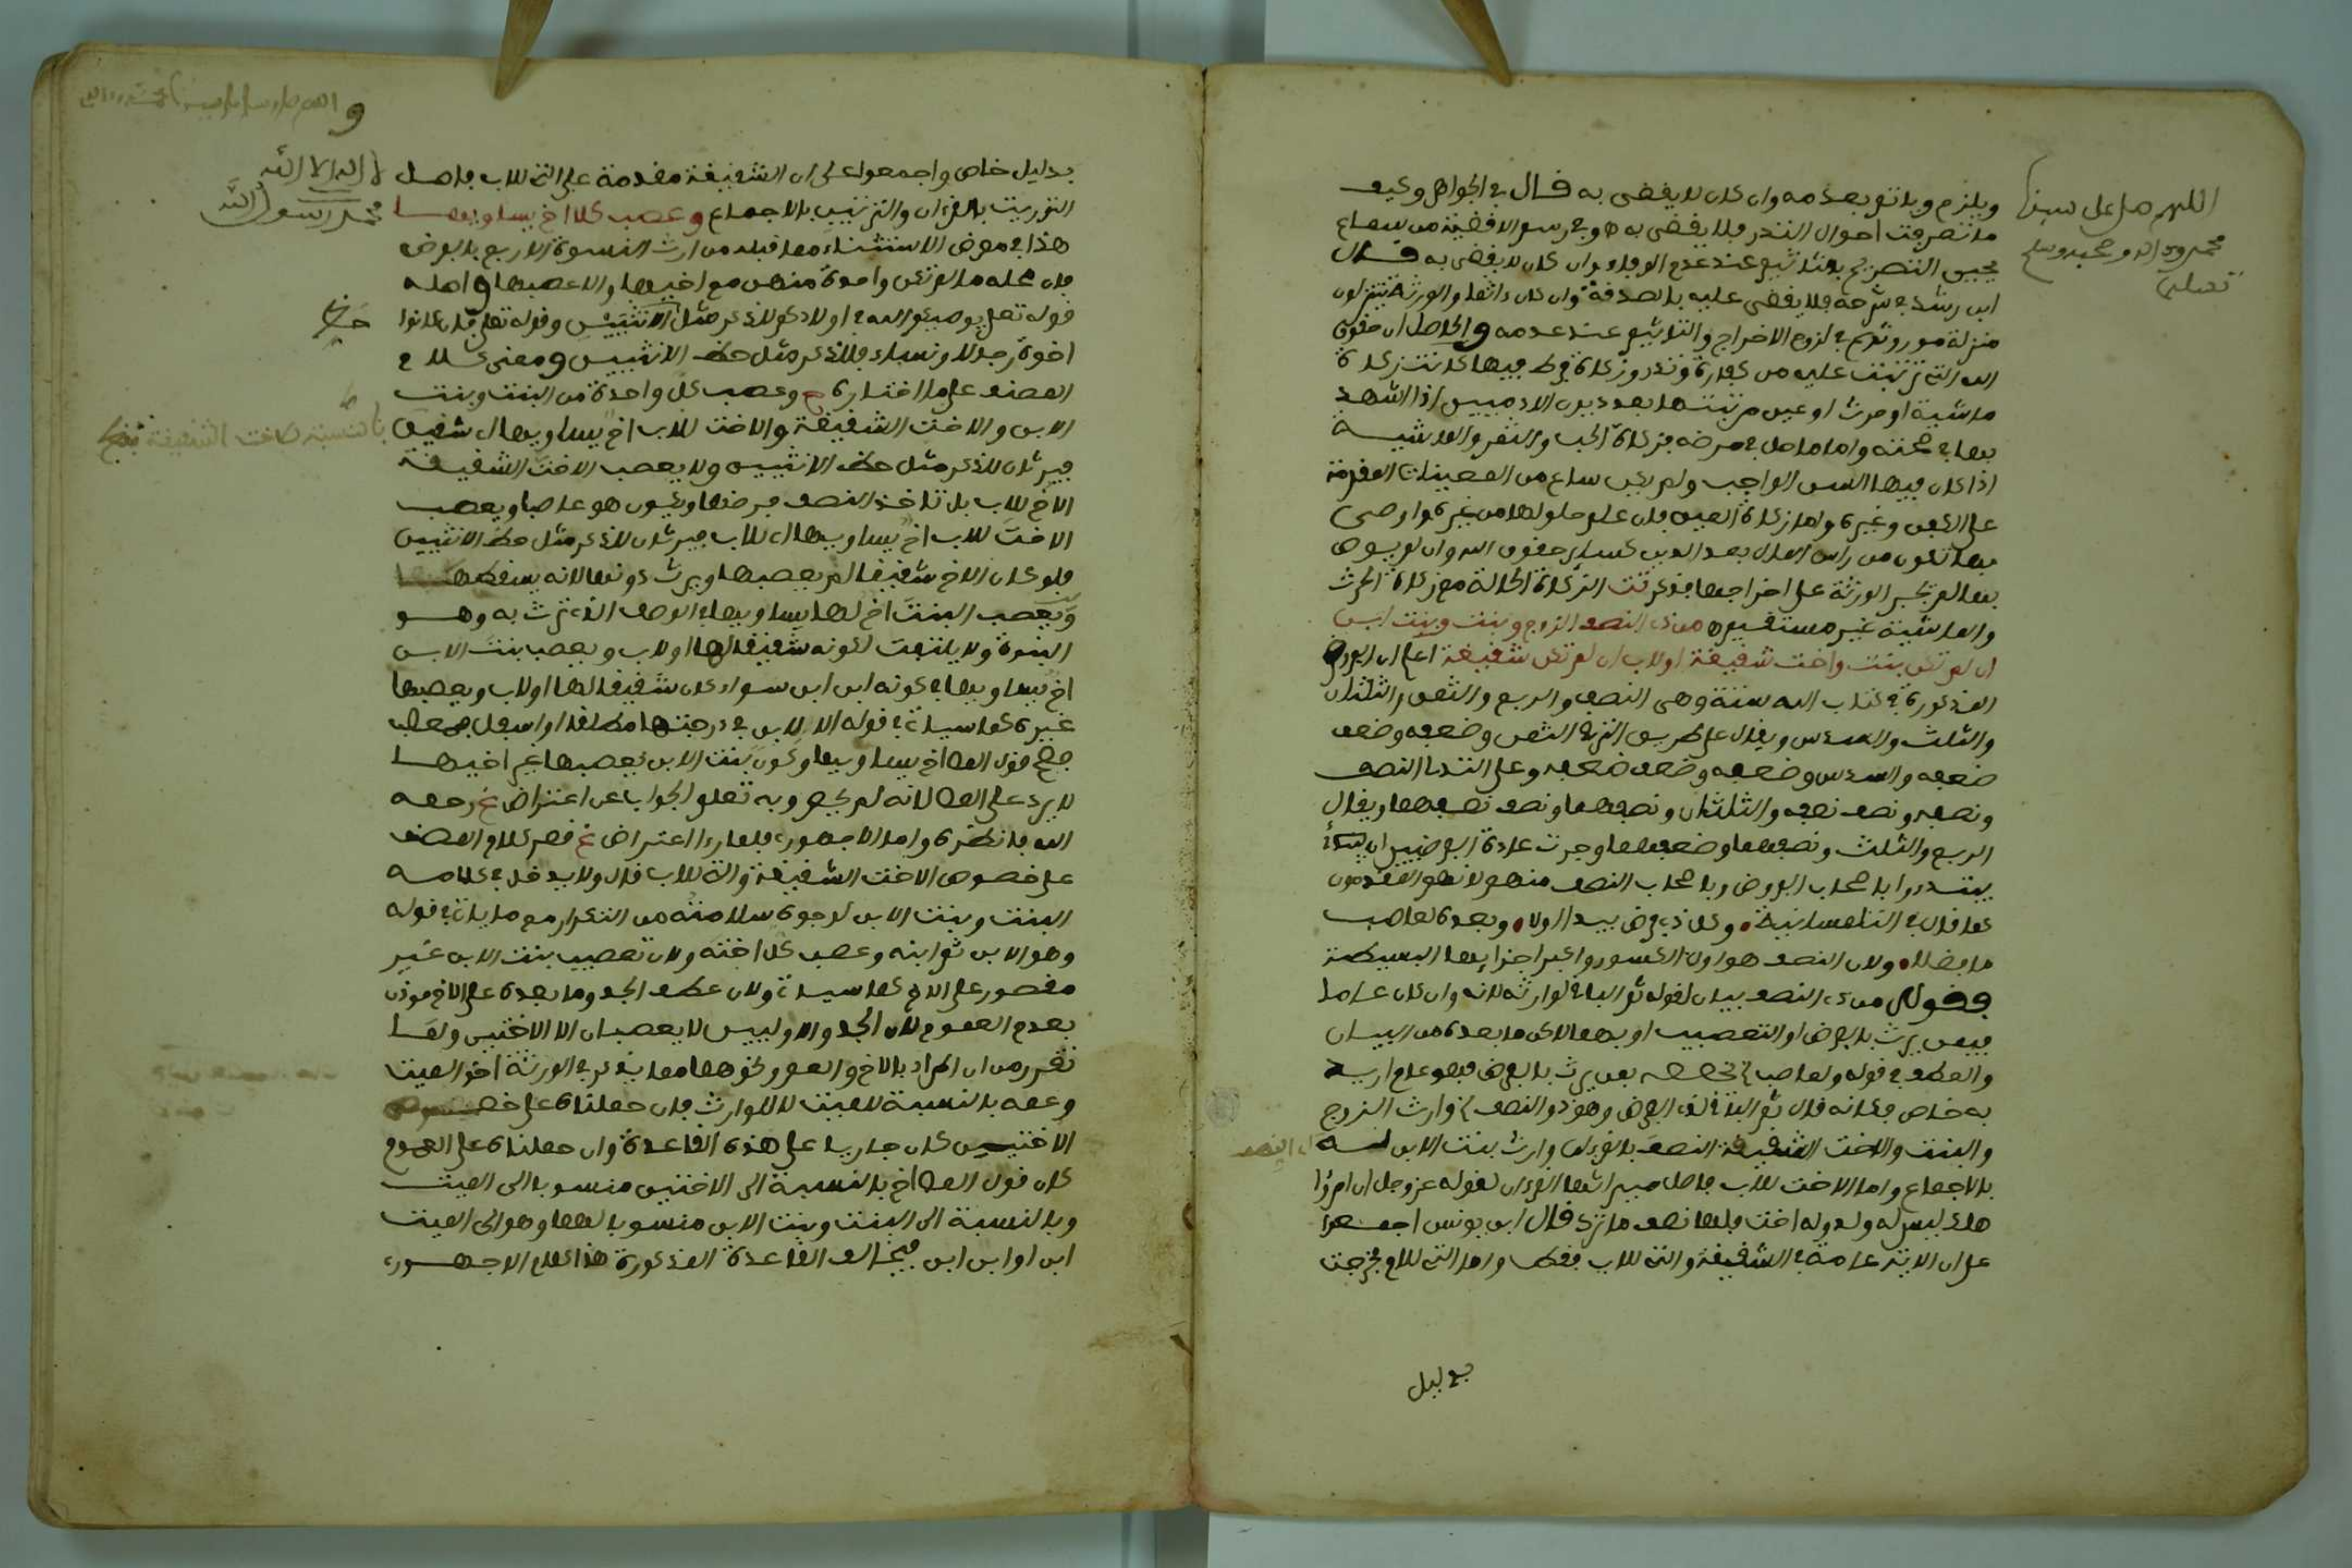 ويلزم وياثم بعدمه وان كان لا يقضى به قال في الجواهر وكيف
ما تصرفت احوال النذر فلا يقضى به هو في رسم الاقضية من سماع
يحيى التصريح بعدم عند عدم الوفاء وان كان لا يقضى به قال
ابن رشد في شرحه فلا يقضى عليه بالصدفة وان كان ءاثما والورثة يتنزلون
منزلة موروثهم في لزوم الاخراج والتاثيم عند عدمه والحاصل ان حقوق
الله التي ترتبت عليه من كفارة ونذر وزكاة فرط فيها كانت زكاة
ماشية او حرث او عين مرتبتها بعد ديون الادميين اذا اشهد
بها في صحته واما ما حل في مرضه فزكاة الحب والثمر والماشية
اذا كان فيها السن الواجب ولم يكن ساع من المعينات المقدمة
على الكفن وغيره واما زكاة العين فان علم حلولها من غيره واوصى
بها تكون من راس المال بعد الدين كسائر حقوق الله وان لم يوص
بها لم يجبر الورثة على اخراجها فذكر تت الزكاة الحالة مع زكاة الحرث
والماشية غير مستقيم ه من ذي النصف الزوج وبنت وبنت ابن
ان لم تكن بنت واخت شقيقة او لاب ان لم تكن شقيقة اعلم ان الفروض
المذكورة في كتاب الله ستة وهي النصف والربع والثمن والثلثان
والثلث والسدس ويقال على طريق الترقي الثمن وضعفه وضعف
ضعفه والسدس وضعفه وضعف ضعفه وعلى التدلي النصف
ونصفه ونصف نصفه والثلثان ونصفهما ونصف نصفهما ويقال
الربع والثلث ونصفهما وضعفهما وجرت عادة الفرضيين ان
يبتدروا باصحاب الفروض وباصحاب النصف منهم لانهم المقدمون
كما قال في التلمسانية وكل ذي فرض يبدا اولا وبعده لعاصب
ما فضلا ولان النصف هو اول الكسور واكبر اجزايها البسيطة
فقوله من ذي النصف بيان لقوله ثم الباقي لوارثه لانه وان كان عاما
فيمن يرث بالفرض او التعصيب او بهما لاكن ما بعده من البيان
والعطف في قوله ولعاصب يخصصه بمن يرث بالفرض فهو عام اريد
به خاص فكانه قال ثم الباقي لذي الفرض وهو ذو النصف وارث الزوج
والبنت والاخت الشقيقة النصف بالقرءان وارث بنت الابن له
بالاجماع واما الاخت للاب فاصل ميراثها القرءان لقوله عز وجل ان امرؤا
هلك ليس له ولد وله اخت فلها نصف ما ترك قال ابن يونس اجمعوا
على ان الاية عامة في الشقيقة والتي للاب فقط واما التي للام فخرجت
بدليل
اللهم صل على سيدنا
محمد وءاله وصحبه وسلم
تسليما
بدليل خاص واجمعوا على ان الشقيقة مقدمة على التي للاب فاصل
التوريث بالقرءان والترتيب بالاجماع وعصب كلا اخ يساويها
هذا في معرض الاستثناء مما قبله من ارث النسوة الاربع بالفرض
فان محله ما لم تكن واحدة منهن مع اخيها والا عصبها واصله
قوله تعلى يوصيكم الله في اولادكم للذكر مثل حظ الانثيين وقوله تعلى فان كانوا
اخوة رجالا ونساء فللذكر مثل حظ الانثيين ومعنى كلام
المصنف على ما اختاره ح وعصب كل واحدة من البنت وبنت
الابن والاخت الشقيقة والاخت للاب اخ يساويها اي شقيق
فيرثان للذكر مثل حظ الانثيين ولا يعصب الاخت الشقيقة
الاخ للاب بل تاخذ النصف فرضها ويكون هو عاصبا ويعصب
الاخت للاب اخ يساويها اي للاب فيرثان للذكر مثل حظ الانثيين
فلو كان الاخ شقيقا لم يعصبها ويرث دونها لانه يسقطها
ويعصب البنت اخ لها يساويها في الوصف الذي ترث به وهو
البنوة ولا يلتفت لكونه شقيقا لها او لاب ويعصب بنت الابن
اخ يساويها في كونه ابن ابن سواء كان شقيقا لها او لاب ويعصبها
غيره كما سياتي في قوله الا لابن في درجتها مطلقا او اسفل فمعصب
فصح قول المص اخ يساويها وكون بنت الابن يعصبها غير اخيها
لا يرد على المص لانه لم يحصر وبه تعلم الجواب عن اعتراض غ رحمه
الله فانظره واما الاجهوري فلما رءا اعتراض غ قصر كلام المصنف
على خصوص الاخت الشقيقة والتي للاب قال ولا يدخل في كلامه
البنت وبنت الابن لوجوه سلامته من التكرار مع ما ياتي في قوله
وهو الابن ثم ابنه وعصب كل اخته ولان تعصيب بنت الابن غير
مقصور على الاخ كما سياتي ولان عطف الجد وما بعده على الاخ موذن
بعدم العموم لان الجد والاوليين لا يعصبان الا الاختين ولما
تقرر من ان المراد بالاخ والعم ونحوهما مما يذكر في الورثة اخو الميت
وعمه بالنسبة للميت لا للوارث فان حملناه على خصوص
الاختين كان جاريا على هذه القاعدة وان حملناه على العموم
كان قول المص اخ بالنسبة الى الاختين منسوبا الى الميت
وبالنسبة الى البنت وبنت الابن منسوبا لهما وهو الى الميت
ابن او ابن ابن فيخالف القاعدة المذكورة هذا كلام الاجهوري
لا اله الا الله
محمد رسول الله
بالنسبة كاخت الشقيقة